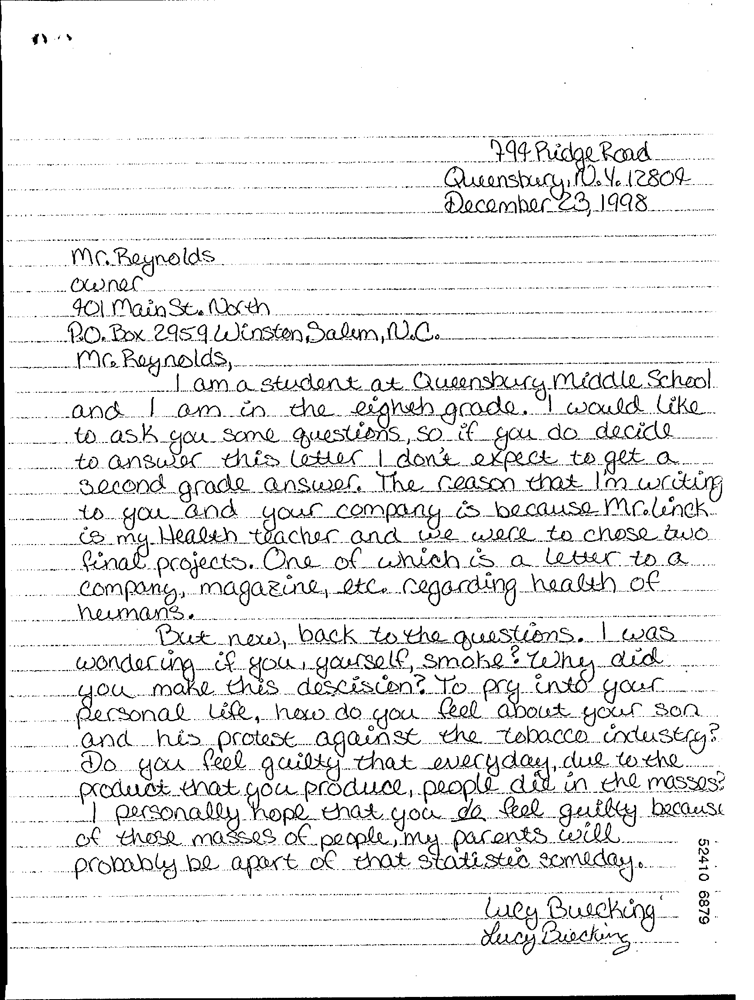 794 Ridge Road
Queensbury, N.Y. 12804
December 23, 1998
Mr. Reynolds
owner
401 Main St. North
P.O. Box 2959 Winston, Salem, N.C.
Mr. Reynolds,
I am a student at Queensbury Middle School
and I am in the eighth grade. I would like
to ask you some questions, so if you do decide
to answer this letter I don't expect to get a
second grade answer. The reason that I'm writing
to you and your company is because Mr. Linck
is my Health teacher and we were to chose two
final projects. One of which is a letter to a
company, magazine, etc. regarding health of
humans.
But now, back to the questions. I was
wondering if you, yourself, smoke? Why did
you make this descision? To pry into your
personal life, how do you feel about your son
and his protest against the tobacco industry?
Do you feel guilty that everyday, due to the
product that you produce, people die in the masses?
I personally hope that you do feel guilty because
of those masses of people, my parents will
probably be apart of that statistic someday.
Lucy Buecking
Lucy Buecking
52410 6879